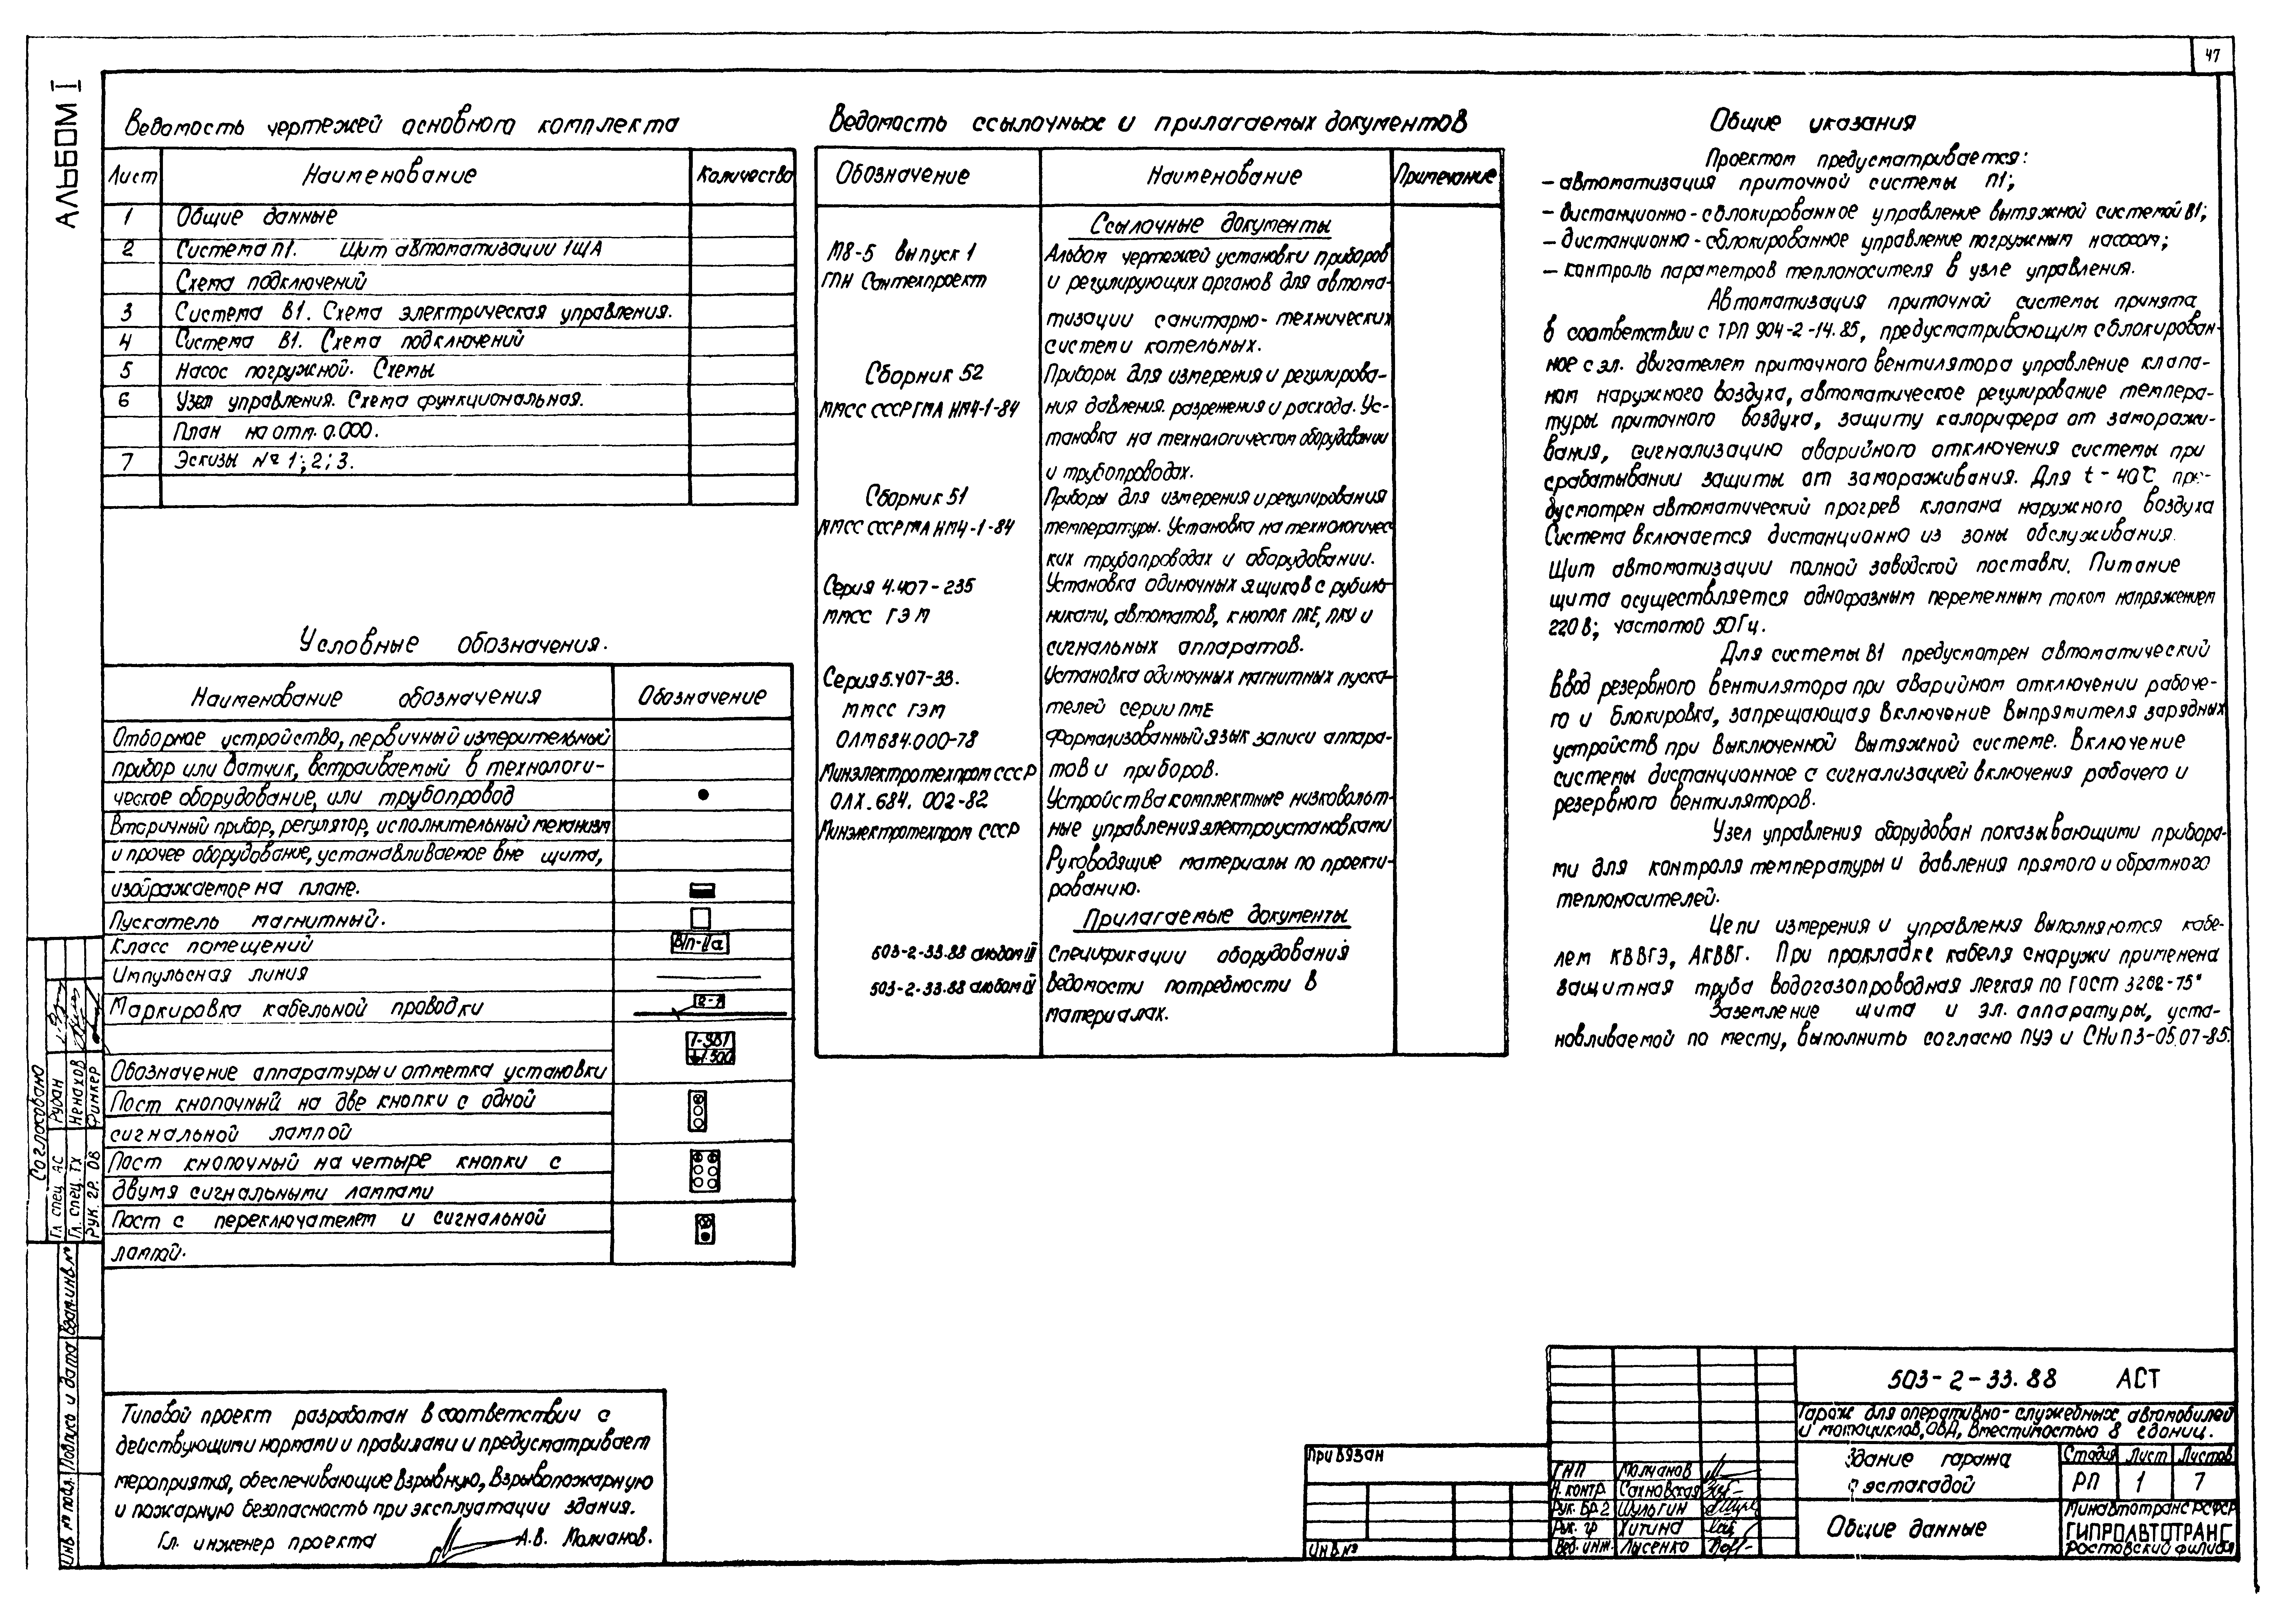 47
АЛЬБОМ I
Ведомость чертежей основного комплекта
Лист Наименование Количество
1 Общие данные
2 Система П1. Щит автоматизации 1ЩА
Схема подключений
3 Система В1. Схема электрическая управления.
4 Система В1. Схема подключений
5 Насос погружной. Схемы
6 Узел управления. Схема функциональная.
План на отм. 0.000.
7 Эскизы №1; 2; 3.
Условные обозначения.
Наименование обозначения Обозначение
Отборное устройство, первичный измерительный
прибор или датчик, встраиваемый в технологи-
ческое оборудование, или трубопровод
Вторичный прибор, регулятор, исполнительный механизм
и прочее оборудование, устанавливаемое вне щита,
изображаемое на плане.
Пускатель магнитный.
Класс помещений В/п-IIа
Импульсная линия
Маркировка кабельной проводки 2-1
Обозначение аппаратуры и отметка установки
Пост кнопочный на две кнопки с одной
сигнальной лампой
Пост кнопочный на четыре кнопки с
двумя сигнальными лампами
Пост с переключателем и сигнальной
лампой.
Типовой проект разработан в соответствии с
действующими нормами и правилами и предусматривает
мероприятия, обеспечивающие взрывную, взрывопожарную
и пожарную безопасность при эксплуатации здания.
Гл. инженер проекта А.В. Молчанов.
Ведомость ссылочных и прилагаемых документов
Обозначение Наименование Примечание
Ссылочные документы
М8-5 выпуск 1 Альбом чертежей установки приборов
ГПН Сантехпроект и регулирующих органов для автома-
тизации санитарно-технических
систем и котельных.
Сборник 52 Приборы для измерения и регулирова-
ММСС СССР ГМА НМ4-1-84 ния давления. разрежения и расхода. Ус-
тановка на технологическом оборудовании
и трубопроводах.
Сборник 51 Приборы для измерения и регулирования
ММСС СССР ГМА НМ4-1-84 температуры. Установка на технологичес
ких трубопроводах и оборудовании.
Серия 4.407-235 Установка одиночных ящиков с рубиль-
ММСС ГЭМ никами, автоматов, кнопок ПКЕ, ПКУ и
сигнальных аппаратов.
Серия 5.407-33. Установка одиночных магнитных пуска-
ММСС ГЭМ телей серии ПМЕ
ОЛМ684.000-78 Формализованный язык записи аппара-
Минэлектротехпром СССР тов и приборов.
ОЛХ.684. 002-82 Устройства комплектные низковольт-
Минэлектротехпром СССР ные управления электроустановками
Руководящие материалы по проекти-
рованию.
Прилагаемые документы
503-2-33.88 альбом III Спецификации оборудования
503-2-33.88 альбом IV Ведомости потребности в
материалах.
Общие указания
Проектом предусматривается:
– автоматизация приточной системы П1;
– дистанционно-сблокированное управление вытяжной системой В1;
– дистанционно-сблокированное управление погружным насосом;
– контроль параметров теплоносителя в узле управления.
Автоматизация приточной системы принята
в соответствии с ТРП 904-2-14.85, предусматривающим сблокирован-
ное с эл. двигателем приточного вентилятора управление клапа-
ном наружного воздуха, автоматическое регулирование темпера-
туры приточного воздуха, защиту калорифера от заморажи-
вания, сигнализацию аварийного отключения системы при
срабатывании защиты от замораживания. Для t-40°С пре-
дусмотрен автоматический прогрев клапана наружного воздуха
Система включается дистанционно из зоны обслуживания.
Щит автоматизации полной заводской поставки. Питание
щита осуществляется однофазным переменным током напряжением
220 В; частотой 50 Гц.
Для системы В1 предусмотрен автоматический
ввод резервного вентилятора при аварийном отключении рабоче-
го и блокировка, запрещающая включение выпрямителя зарядных
устройств при выключенной вытяжной системе. Включение
системы дистанционное с сигнализацией включения рабочего и
резервного вентиляторов.
Узел управления оборудован показывающими прибора-
ми для контроля температуры и давления прямого и обратного
теплоносителей.
Цепи измерения и управления выполняются кабе-
лем КВВГЭ, АКВВГ. При прокладке кабеля снаружи применена
защитная труба водогазопроводная легкая по ГОСТ 3262-75*
Заземление щита и эл. аппаратуры, уста-
новливаемой по месту, выполнить согласно ПУЭ и СНиП3-05.07-85.
Согласовано
Гл спец АС Рудан
Гл. спец. ТХ Ненахов
Рук. гр. ОВ Финкер
Взам.инв.№
Подпись и дата
Инв № подл.
Привязан
Инв.№
ГИП Молчанов
Н.контр Сахновская
Рук. БР-2 Шульгин
Рук. гр Хитина
Вед. инж. Лысенко
503-2-33.88 АСТ
Гараж для оперативно-служебных автомобилей
и мотоциклов, ОВД, вместимостью 8 единиц.
Здание гаража
с эстакадой
Стадия Лист Листов
РП 1 7
Общие данные
Минавтотранс РСФСР
ГИПРОАВТОТРАНС
Ростовский филиал